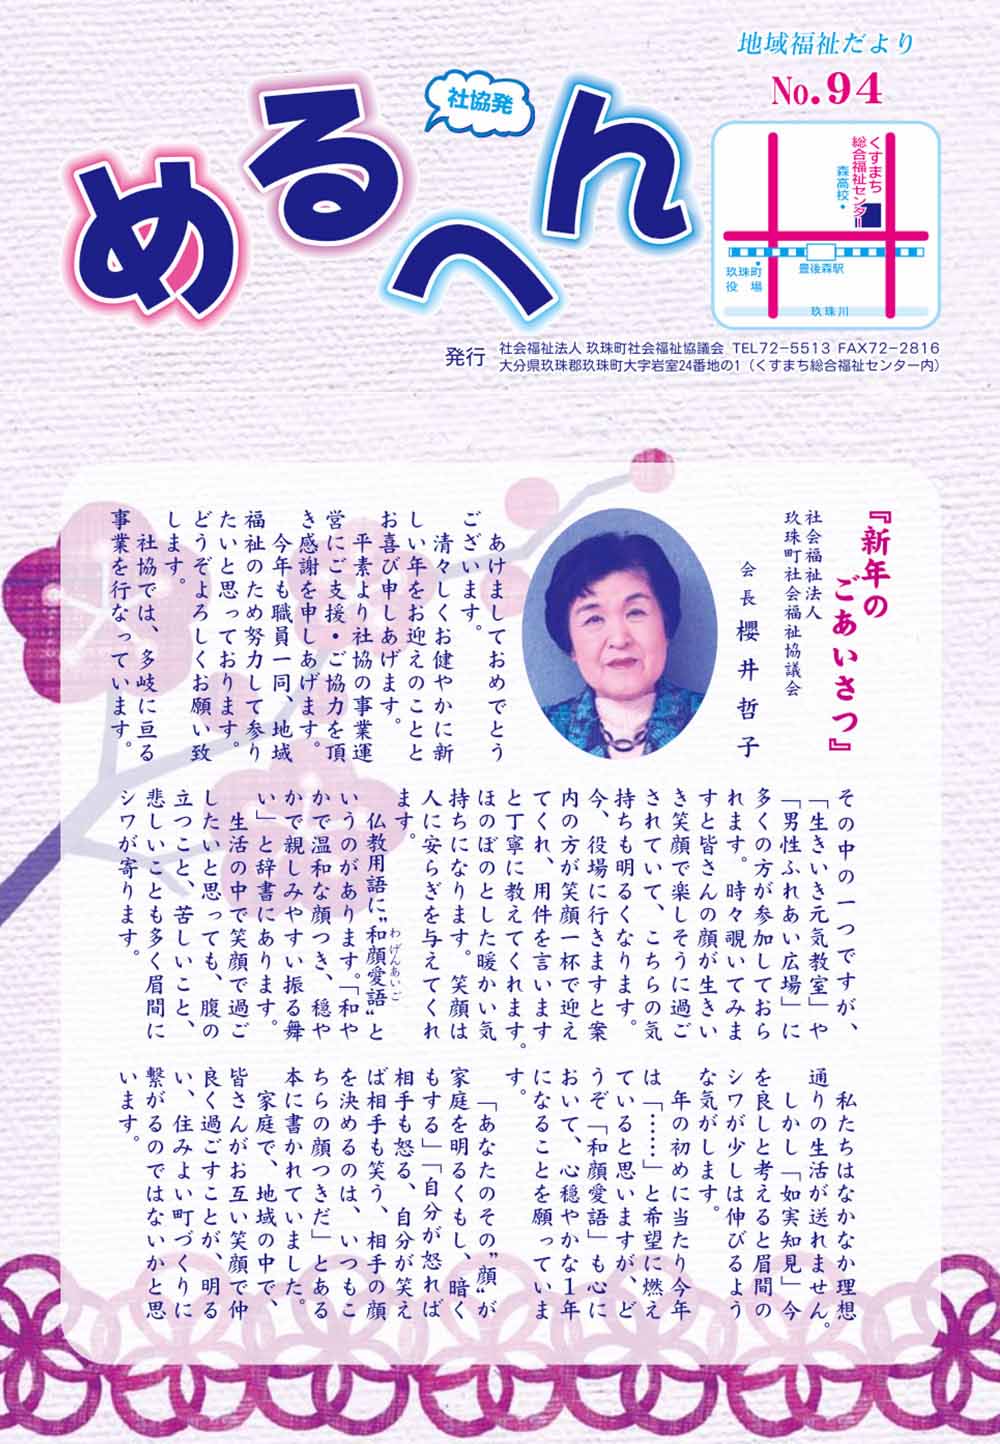 地域福祉だより
No.94
社協発
めるへん
くすまち
総合福祉センター
森高校
玖珠町
役場
豊後森駅
玖珠川
発行
社会福祉法人 玖珠町社会福祉協議会 TEL72−5513 FAX72−2816
大分県玖珠郡玖珠町大字岩室24番地の1（くすまち総合福祉センター内）
『新年の
ごあいさつ』
社会福祉法人
玖珠町社会福祉協議会
会長 櫻井哲子
あけましておめでとう
ございます。
清々しくお健やかに新
しい年をお迎えのことと
お喜び申しあげます。
平素より社協の事業運
営にご支援・ご協力を頂
き感謝を申しあげます。
今年も職員一同、地域
福祉のため努力して参り
たいと思っております。
どうぞよろしくお願い致
します。
社協では、多岐に亘る
事業を行なっています。
その中の一つですが、
「生きいき元気教室」や
「男性ふれあい広場」に
多くの方が参加しておら
れます。時々覗いてみま
すと皆さんの顔が生きい
き笑顔で楽しそうに過ご
されていて、こちらの気
持ちも明るくなります。
今、役場に行きますと案
内の方が笑顔一杯で迎え
てくれ、用件を言います
と丁寧に教えてくれます。
ほのぼのとした暖かい気
持ちになります。笑顔は
人に安らぎを与えてくれ
ます。
仏教用語に“和顔愛語”と
わげんあいご
いうのがあります。「和や
かで温和な顔つき、穏や
かで親しみやすい振る舞
い」と辞書にあります。
生活の中で笑顔で過ご
したいと思っても、腹の
立つこと、苦しいこと、
悲しいことも多く眉間に
シワが寄ります。
私たちはなかなか理想
通りの生活が送れません。
しかし「如実知見」今
を良しと考えると眉間の
シワが少しは伸びるよう
な気がします。
年の初めに当たり今年
は「……」と希望に燃え
ていると思いますが、ど
うぞ「和顔愛語」も心に
おいて、心穏やかな１年
になることを願っていま
す。
「あなたのその“顔”が
家庭を明るくもし、暗く
もする」「自分が怒れば
相手も怒る、自分が笑え
ば相手も笑う、相手の顔
を決めるのは、いつもこ
ちらの顔つきだ」とある
本に書かれていました。
家庭で、地域の中で、
皆さんがお互い笑顔で仲
良く過ごすことが、明る
い、住みよい町づくりに
繋がるのではないかと思
います。